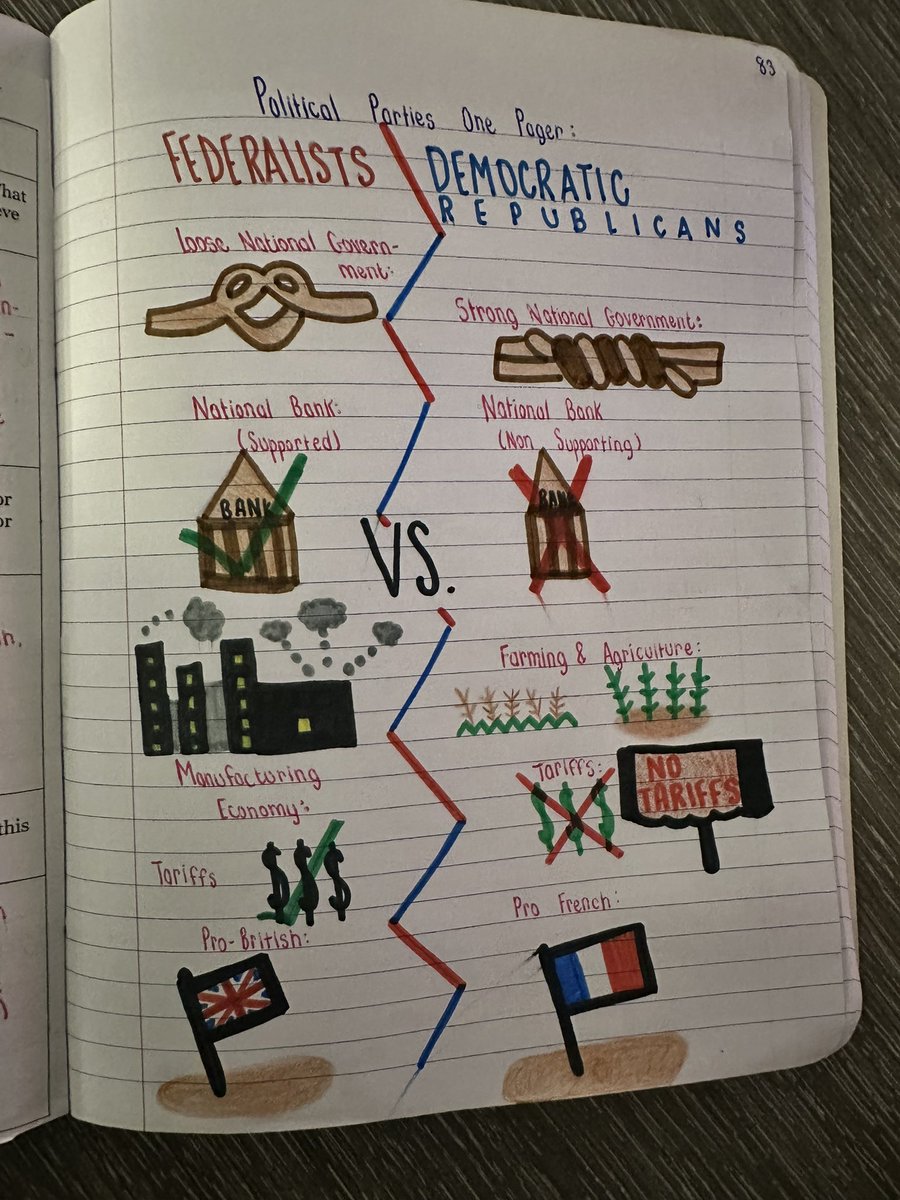 83
Political Parties One Pager:
FEDERALISTS
Loose National Govern-
ment:
National Bank:
(Supported)
BANK
Manufacturing
Economy:
Tariffs
$$$
Pro-British:
VS.
DEMOCRATIC
REPUBLICANS
Strong National Government:
National Bank
(Non Supporting)
BANK
Farming & Agriculture:
Tariffs:
$$$
NO
TARIFFS
Pro French:
or
or
this